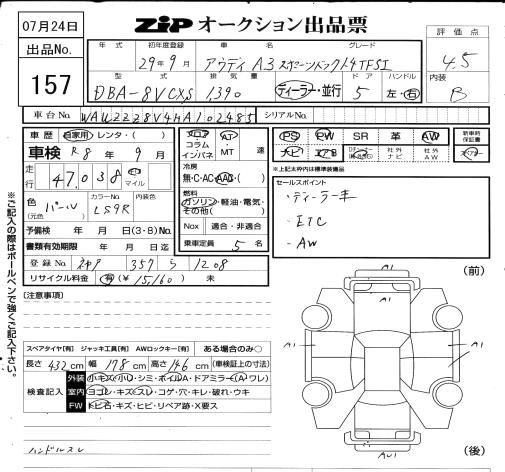 07月24日
ZiP オークション出品票
出品No.
157
年式 初年度登録 車名 グレード
29年9月 アウディ A3 スポーツバック1.4TFSI
型式 排気量 ドア ハンドル
DBA-8VCXS 1,390 ディーラー・並行 5 左・右
評価点
4.5
内装
B
車台No. WAUZZZ8V4HA102485 シリアルNo.
車歴 自家用・レンタ・( )
車検 R8年9月
走行 47,038 km マイル
色(元色) パール カラーNo. LS9R 内装色
予備検 年 月 日(3・8)No.
書類有効期限 年 月 日迄
登録No. 357 ら 1208
リサイクル料金 有(¥15,160) 未
フロア コラム インパネ AT・MT 速
冷房
無・C・AC・AAC
燃料
ガソリン・軽油・電気・その他( )
Nox 適合・非適合
乗車定員 5名
PS PW SR 革 AW 新車時保証書
ナビ エアB 社外ナビ 社外AW
※上記太枠内は標準装備品
セールスポイント
・ディーラー車
・ETC
・AW
(注意事項)
スペアタイヤ[有] ジャッキ工具[有] AWロックキー[有] ある場合のみ○
長さ 432cm 幅 178cm 高さ 146cm (車検証上の寸法)
検査記入
外装 小キズ・小U・シミ・ボイルA・ドアミラー(A・ワレ)
室内 ヨゴレ・キズ・スレ・コゲ・穴・キレ・破れ・ウキ
FW トビ石・キズ・ヒビ・リペア跡・X要ス
ハンドルスレ
(前)
A1
A1
A1
A1
A1
AU1
(後)
※ご記入の際はボールペンで強くご記入下さい。